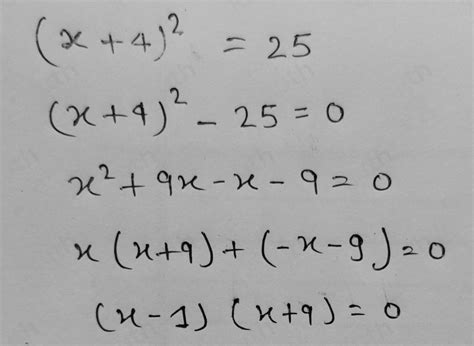 (x+4)² = 25
(x+4)² - 25 = 0
x² + 9x - x - 9 = 0
x(x+9) + (-x-9) = 0
(x-1) (x+9) = 0